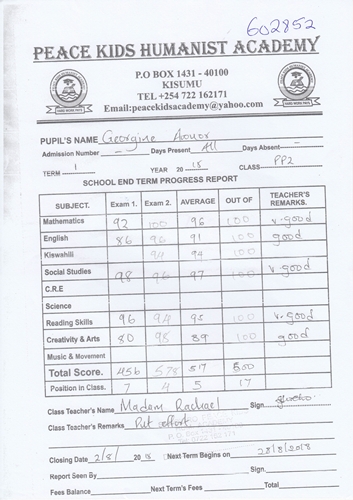 602852
PEACE KIDS HUMANIST ACADEMY
P.O BOX 1431 - 40100
KISUMU
TEL +254 722 162171
Email:peacekidsacademy@yahoo.com
PUPIL'S NAME Georgine Aouor
Admission Number - Days Present All Days Absent -
TERM 1 YEAR 2018 CLASS PP2
SCHOOL END TERM PROGRESS REPORT
SUBJECT. Exam 1. Exam 2. AVERAGE OUT OF TEACHER'S REMARKS.
Mathematics 92 100 96 100 v-good
English 86 96 91 100 good
Kiswahili 94 94 100
Social Studies 98 96 97 100 v-good
C.R.E
Science
Reading Skills 96 94 95 100 v-good
Creativity & Arts 80 98 89 100 good
Music & Movement
Total Score. 456 578 517 500
Position in Class. 7 4 5 17
Class Teacher's Name Madam Rachael Sign
Class Teacher's Remarks Put effort
Closing Date 2/8/ 2018 Next Term Begins on 28/8/2018
Report Seen By Sign
Fees Balance Next Term's Fees Total